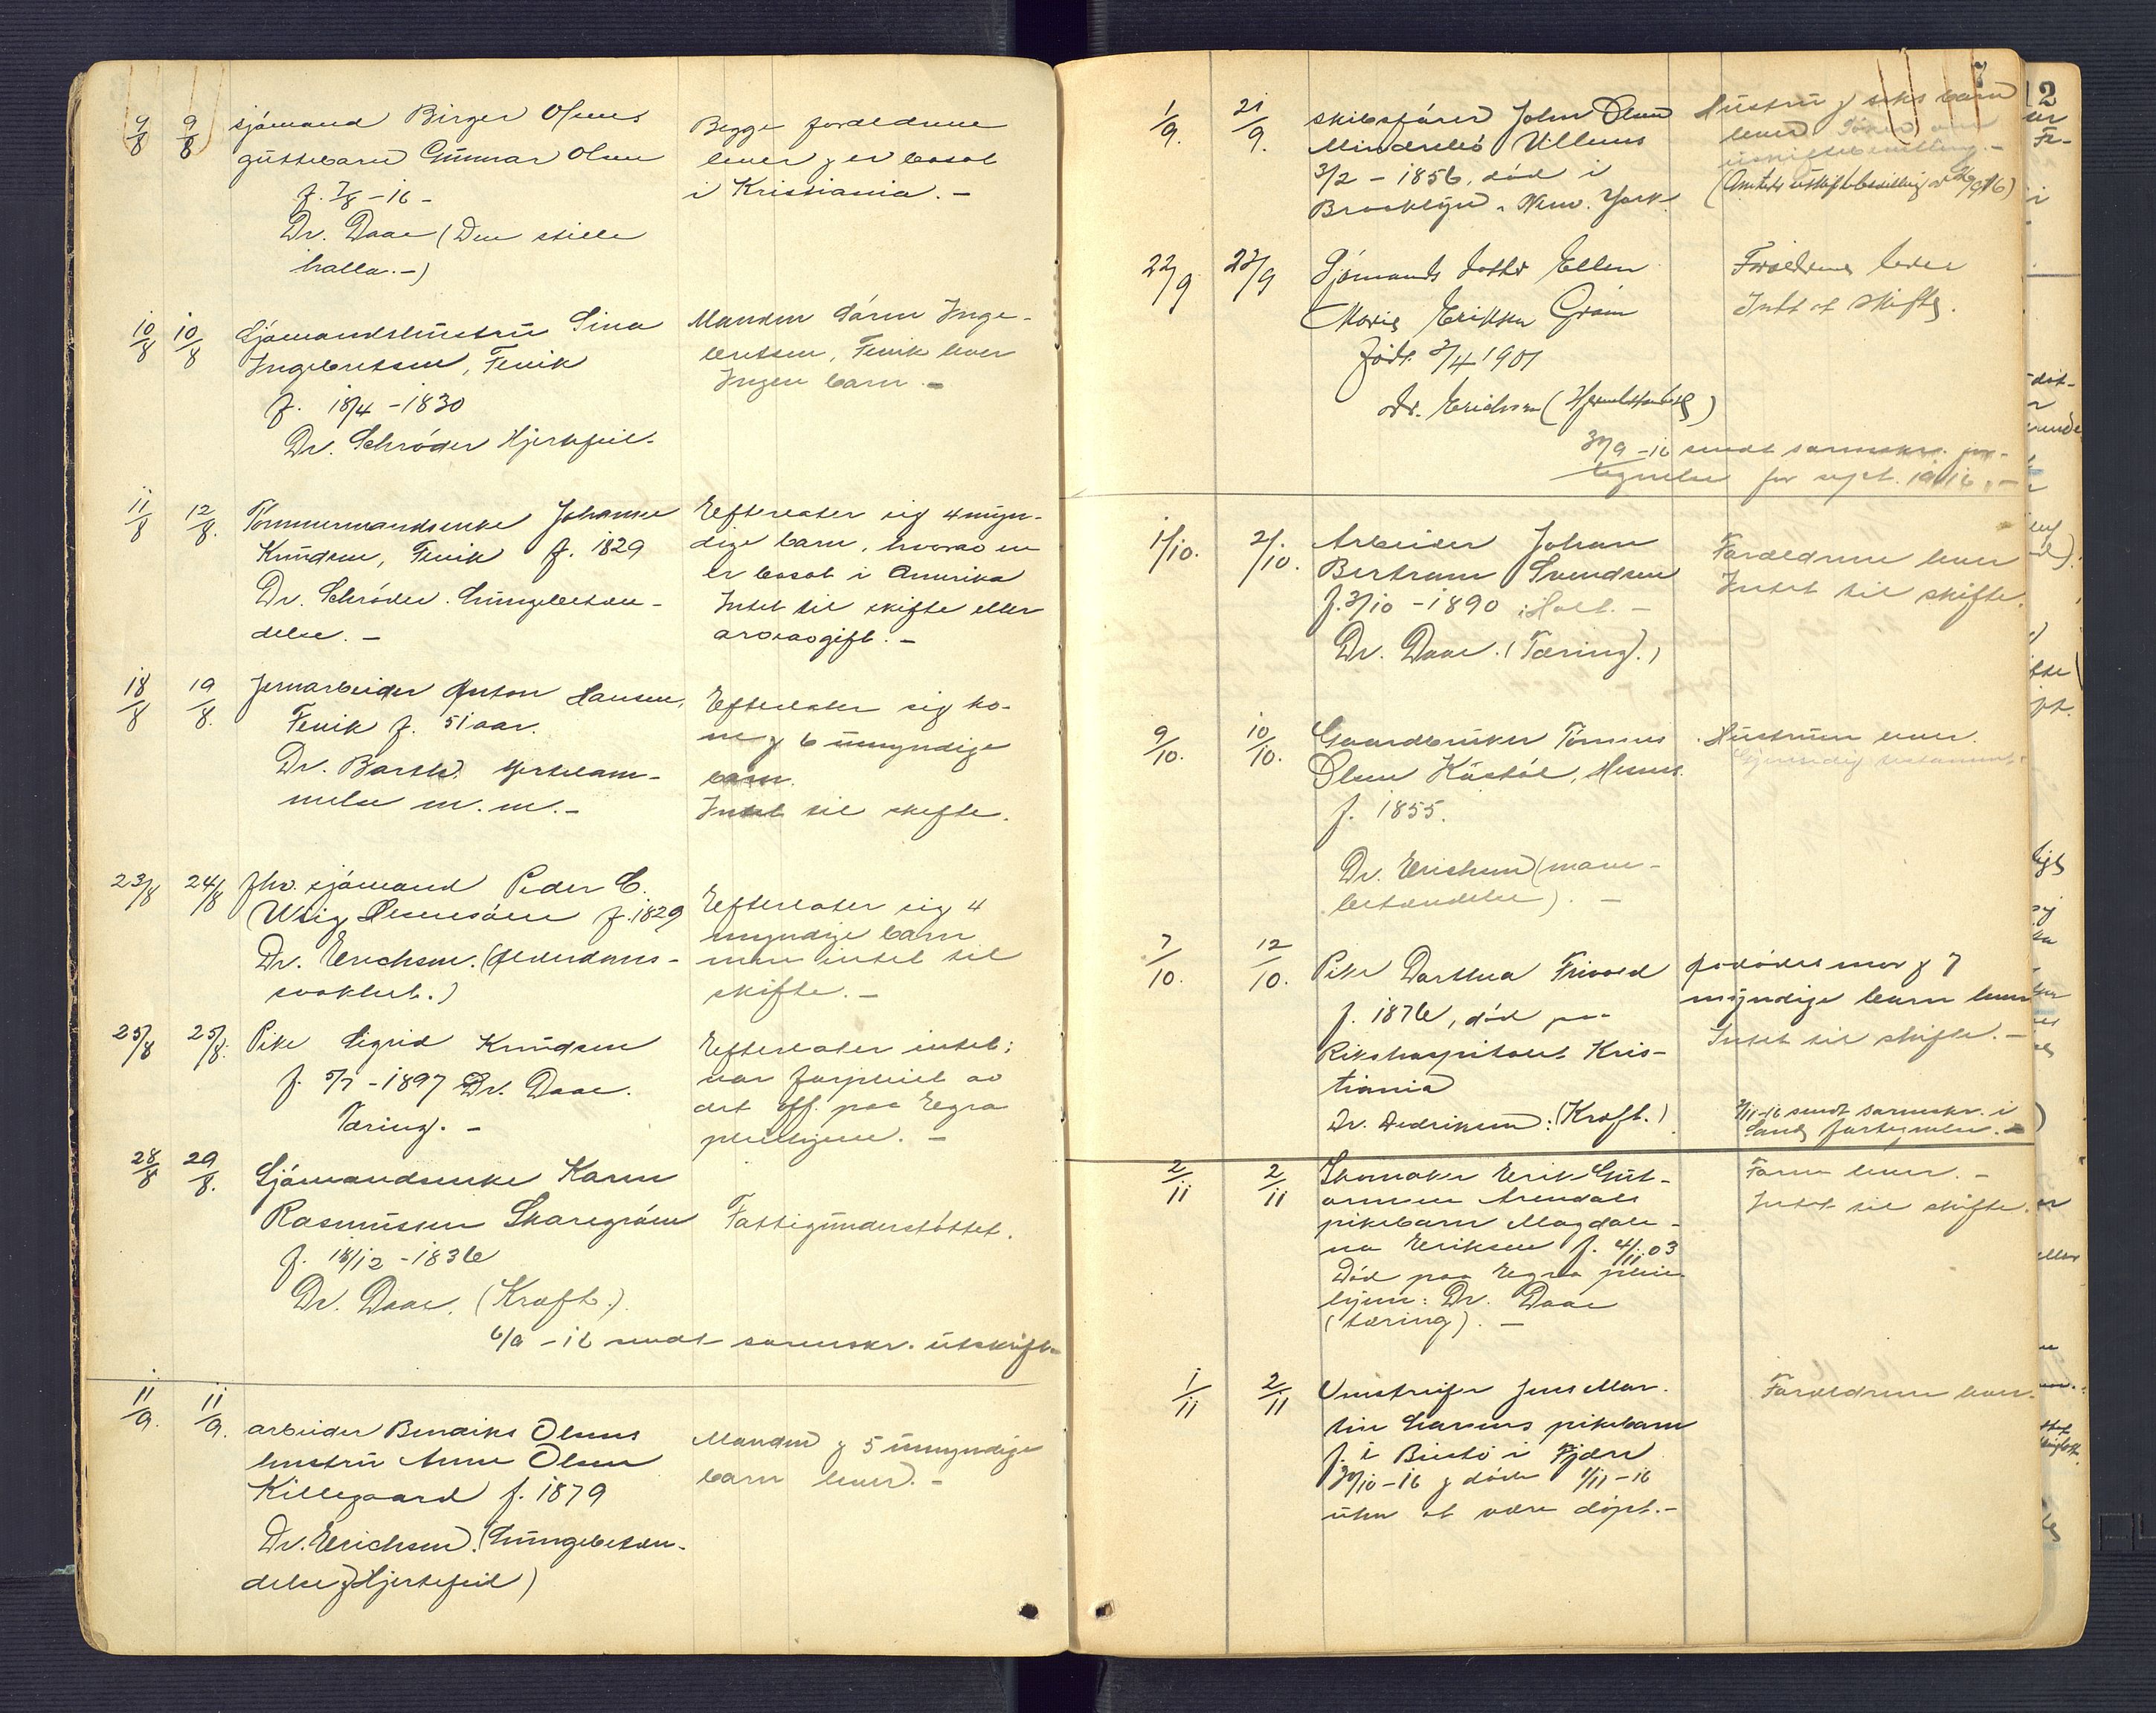 9/8 9/8 sjømand Birger Olsens
guttebarn Gunnar Olsen
f. 7/8 - 16 -
Dr. Daae (Den stille
halla. -)
Begge forældrene
lever g er bosat
i Kristiania. -
10/8 10/8 Sjømandshustru Sina
Ingebretsen, Fevik
f. 18/4 - 1830
Dr. Schrøder Hjertefeil.
Manden Søren Inge-
bretsen, Fevik lever
Ingen barn. -
11/8 12/8. Tømmermandsenke Johanne
Knudsen, Fevik f. 1829
Dr. Schrøder. Lungebetæn-
delse. -
Efterlater sig 4 myn-
dige barn, hvorav en
er bosat i Amerika
Intet til skifte eller
arveavgift. -
18/8 19/8. Jernarbeider Anton Hansen,
Fevik f. 51 aar.
Dr. Barth. Hjertelam-
melse m. m. -
Efterlater sig ko-
ne g 6 umyndige
barn.
Intet til skifte.
23/8 24/8 fhv. sjømand Peder C.
f. 1829
Dr. Erichsen. (Alderdoms-
svakhet.)
Efterlater sig 4
myndige barn
men intet til
skifte. -
25/8 25/8. Pike Sigrid Knudsen
f. 5/7 - 1897 Dr. Daae.
Tæring. -
Efterlater intet;
var forpleiet av
det off. paa Egra
pleiehjem. -
28/8 29/8. Sjømandsenke Karen
Rasmussen Skaregrøm
f. 18/12 - 1836
Dr. Daae. (Kræft.)
Fattigunderstøttet.
6/9 - 16 sendt særuskr. utskrift.
11/9. 11/9. arbeider Bendiks Olsens
hustru Anne Olsen
Killegaard f. 1879
Dr. Erichsen. (Lungebetæn-
delse g Hjertefeil)
Manden g 5 umyndige
barn lever. -
7
1/9. 21/9. skibsfører John Olsen
Vilhelms
3/2 - 1856, død i
Brooklyn. New. York.
Hustru g seks barn
lever. Søker om
uskiftebevilling. -
22/9 23/9 Sjømands datter Ellen
Marie Erikka Grøm
født 3/4 1901
dr. Erichsen
Forældrene lever
Intet at skifte.
30/9 - 16 sendt for-
tegnelse for sept. 1916. -
1/10. 2/10. Arbeider Johan
Bertram Svendsen
f. 3/10 - 1890 i Holt. -
Dr. Daae. (Tæring.)
Forældrene lever
Intet til skifte.
9/10. 10/10. Gaardbruker Tønnes
Olsen
f. 1855.
Dr. Erichsen (mave-
betændelse). -
Hustruen lever.
Gjensidig testament.
7/10. 12/10. Pike Dorthea Frivold
f. 1876, død paa
Rikshospitalet Kris-
tiania
Dr. Dedriksen: (Kræft.)
mor g 7
myndige barn lever
Intet til skifte. -
2/11-16 sendt i
fortegnelse. -
2/11 2/11 Skomaker Erik Gut-
ormsen Arendals
pikebarn Magdale-
na Eriksen f. 4/11 03
Død paa Egra pleie
hjem: Dr. Daae
(tæring). -
Faren lever. -
Intet til skifte.
1/11 2/11 Omstreifer Jens Mar-
tin Larsens pikebarn
f. i Biestø i Fjære
30/10 - 16 g døde 1/11 - 16
uten at være døpt. -
Forældrene lever.
12